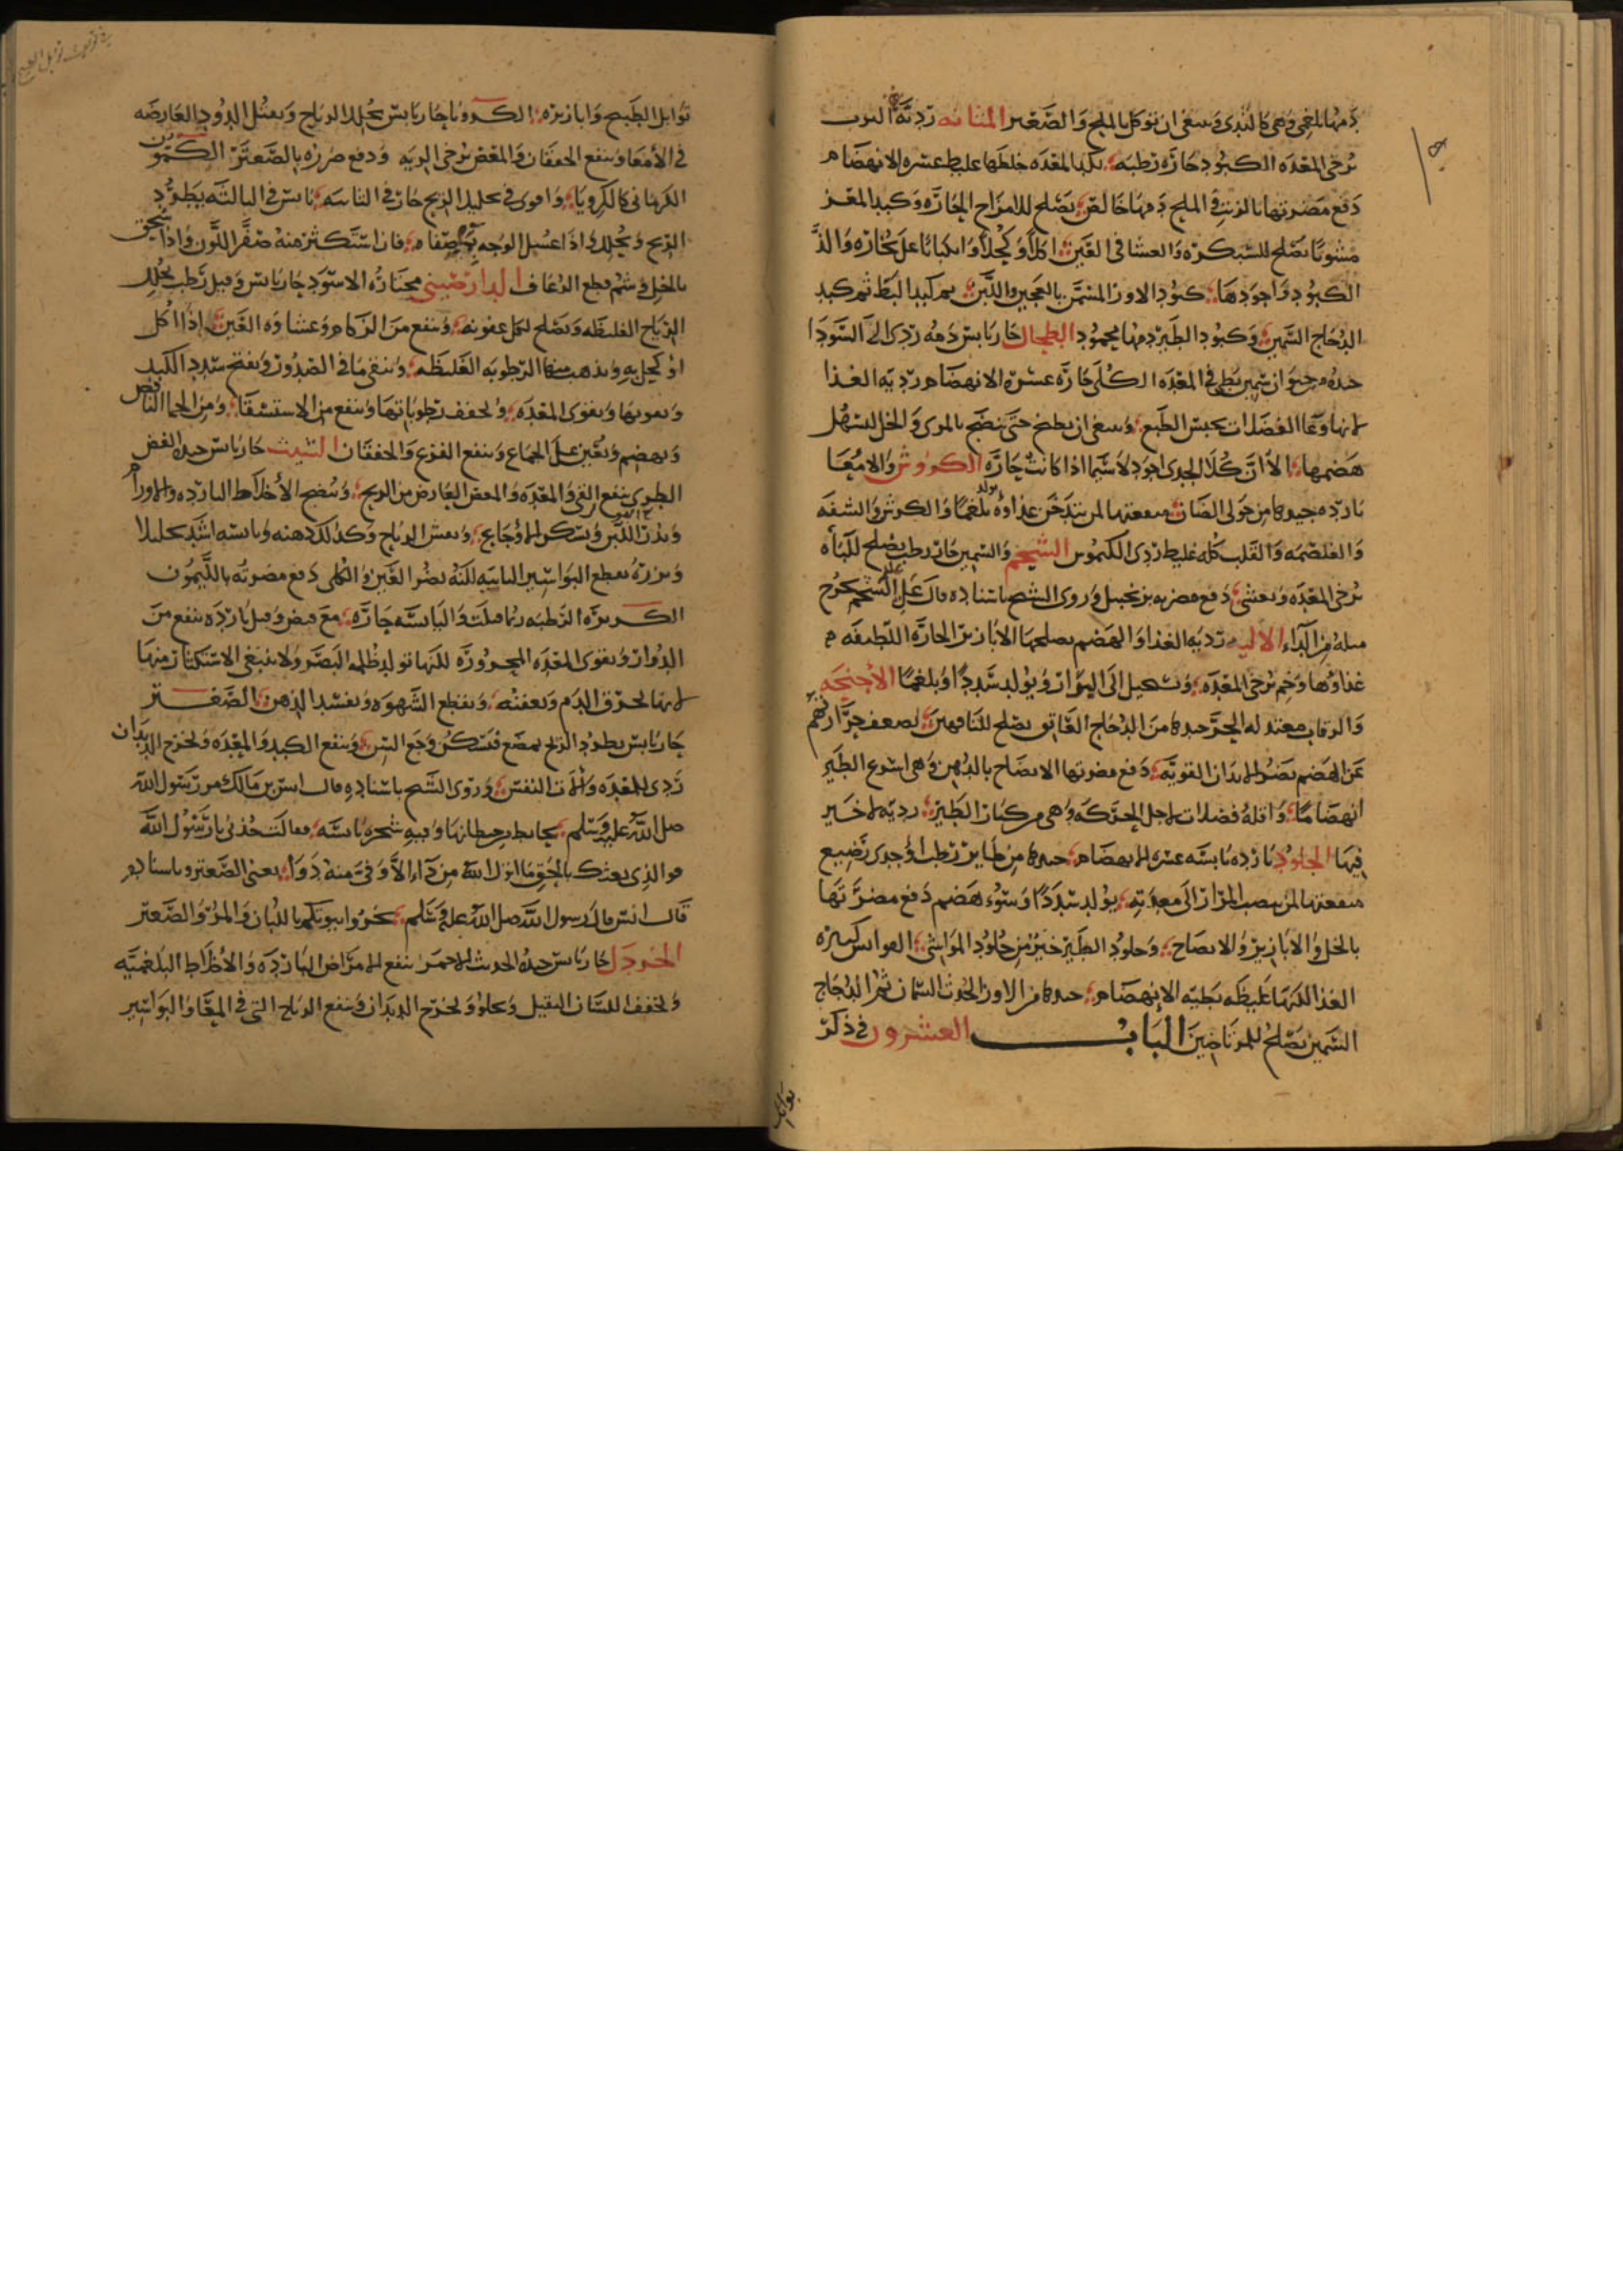 دمها بلغمي وهي كالثدي وينبغي ان تؤكل بالملح والصعتر المثانه ردية
ترخي المعده الكبود حارة رطبه بكد المعده خلطها غليظ عسره الانهضام
دفع مضرتها بالزيت والملح دمها خالص يصلح للامزاج الحارة وكبد المعز
مشويا يصلح للشبكرة والعشا في العين اكلا وكحلا وانكبابا على بخاره والذ
الكبود واجودها كبود الاوز المسمن بالعجين واللبن ثم كبد البط ثم كبد
الدجاج السمين وكبود الطير دمها محمود الطحال حار يابس دمه ردي الى السودا
جيده من حيوان سمين بطي في المعده الكلى حارة عسرة الانهضام ردية الغذا
لانها وعا الفضلات يحبس الطبع وينبغي ان يطبخ حتى ينضج بالمري والخل ليسهل
هضمها الا ان كلا الجدي اجود لا سيما اذا كانت حارة الكروش والامعا
بارده جيدها من حولي الضان منفعتها لمن يتدخن غذاوه يولد بلغما والكرش والشفه
والغلصمه والقلب كله غليظ ردي الكموس الشحم والسمين حار رطب يصلح للباه
يرخي المعده ويغثي دفع مضرته بزنجبيل وروي الشيخ باسناده قال علي الشحم يخرج
مثله من الداء الاليه ردية الغذا والهضم يصلحها الابازير الحارة اللطيفه
غذاوها وخم يرخي المعده ويستحيل الى المرار ويولد سددا وبلغما الاجنحه
والرقاب معتدله الحر جيدها من الدجاج الفاتق يصلح للناقهين لضعف حرارتهم
عن الهضم يضر الابدان القوية دفع مضرتها الانضاج بالدهن وهي اسرع الطير
انهضاما واقله فضلات لاجل الحركه وهي من كبار الطير رديه لا خير
فيها الجلود بارده يابسه عسره الانهضام جيدها من طاير رطب او جدي رضيع
منفعتها لمن ينصب المرار الى معدته يولد سددا وسوء هضم دفع مضرتها
بالخل والابازير والانضاج وجلود الطير خير من جلود المواشي القوانس كثيره
الغذا لكنها غليظه بطيه الانهضام جيدها من الاوز الحدث السمان ثم الدجاج
السمين يصلح للمرتاضين الباب العشرون في ذكر
توابل
توابل الطبيخ وابازيره الكرويا حار يابس يحلل الرياح ويقتل الدود العارضه
في الامعا وينفع الخفقان والمغص يرخي الريه ودفع ضرره بالصعتر الكمون
الكرماني كالكرويا واقوى في تحليل الريح حار في الثانيه يابس في الثالثه يطرد
الريح ويحلله واذا غسل الوجه بمايه صفاه فان استكثر منه صفر اللون واذا سحق
بالخل وشم قطع الرعاف الدارصيني مختاره الاسود حار يابس وقيل رطب يحلل
الرياح الغليظه ويصلح لكل عفونه وينفع من الزكام وعشاوه العين اذا اكل
او كحل به ويذهب الرطوبه الغليظه وينقي ما في الصدور ويفتح سدد الكبد
ويقويها ويقوي المعده ويجفف رطوباتها وينفع من الاستسقا ومن الحما النافض
ويهضم ويعين على الجماع وينفع الفزع والخفقان الشبث حار يابس جيده الغض
الطري ينفع القي والمعده والمغص العارض من الريح وينضج الاخلاط البارده والاورام
ويدر اللبن ويسكن الاوجاع ويفش الرياح وكذلك دهنه ويابسه اشد تحليلا
وبزره يقطع البواسير النابتيه لكنه يضر العين والكلى دفع مضرته بالليمون
الكسبره الرطبه والياسه حارة مع قبض وقيل بارده ينفع من
الدوار ويقوي المعده المحروره لكنها تولد ظلمه البصر ولا ينبغي الاستكثار منها
لانها تحرق الدم وتعفنه ويقطع الشهوه ويفسد الذهن الصعتر
حار يابس يطرد الريح يمضغ فيسكن وجع السن وينفع الكبد والمعده ويخرج الديدان
ردي للمعده والات النفس وروى الشيخ باسناده قال انس بن مالك مر رسول الله
صلى الله عليه وسلم بحايط من حيطانها وفيه شجره يابسه فقالت خذني يا رسول الله
فوالذي بعثك بالحق ما انزل الله من داء الا وفي منه دوا يعني الصعتر وباسناده
قال انس قال رسول الله صلى الله عليه وسلم بخروا بيوتكم باللبان والمر والصعتر
الخردل حار يابس جيده الحديث الاحمر ينفع الامراض البارده والاخلاط البلغميه
ويخفف اللسان الثقيل ويجلو ويخرج الديدان وينفع الرياح التي في المعا والبواسير